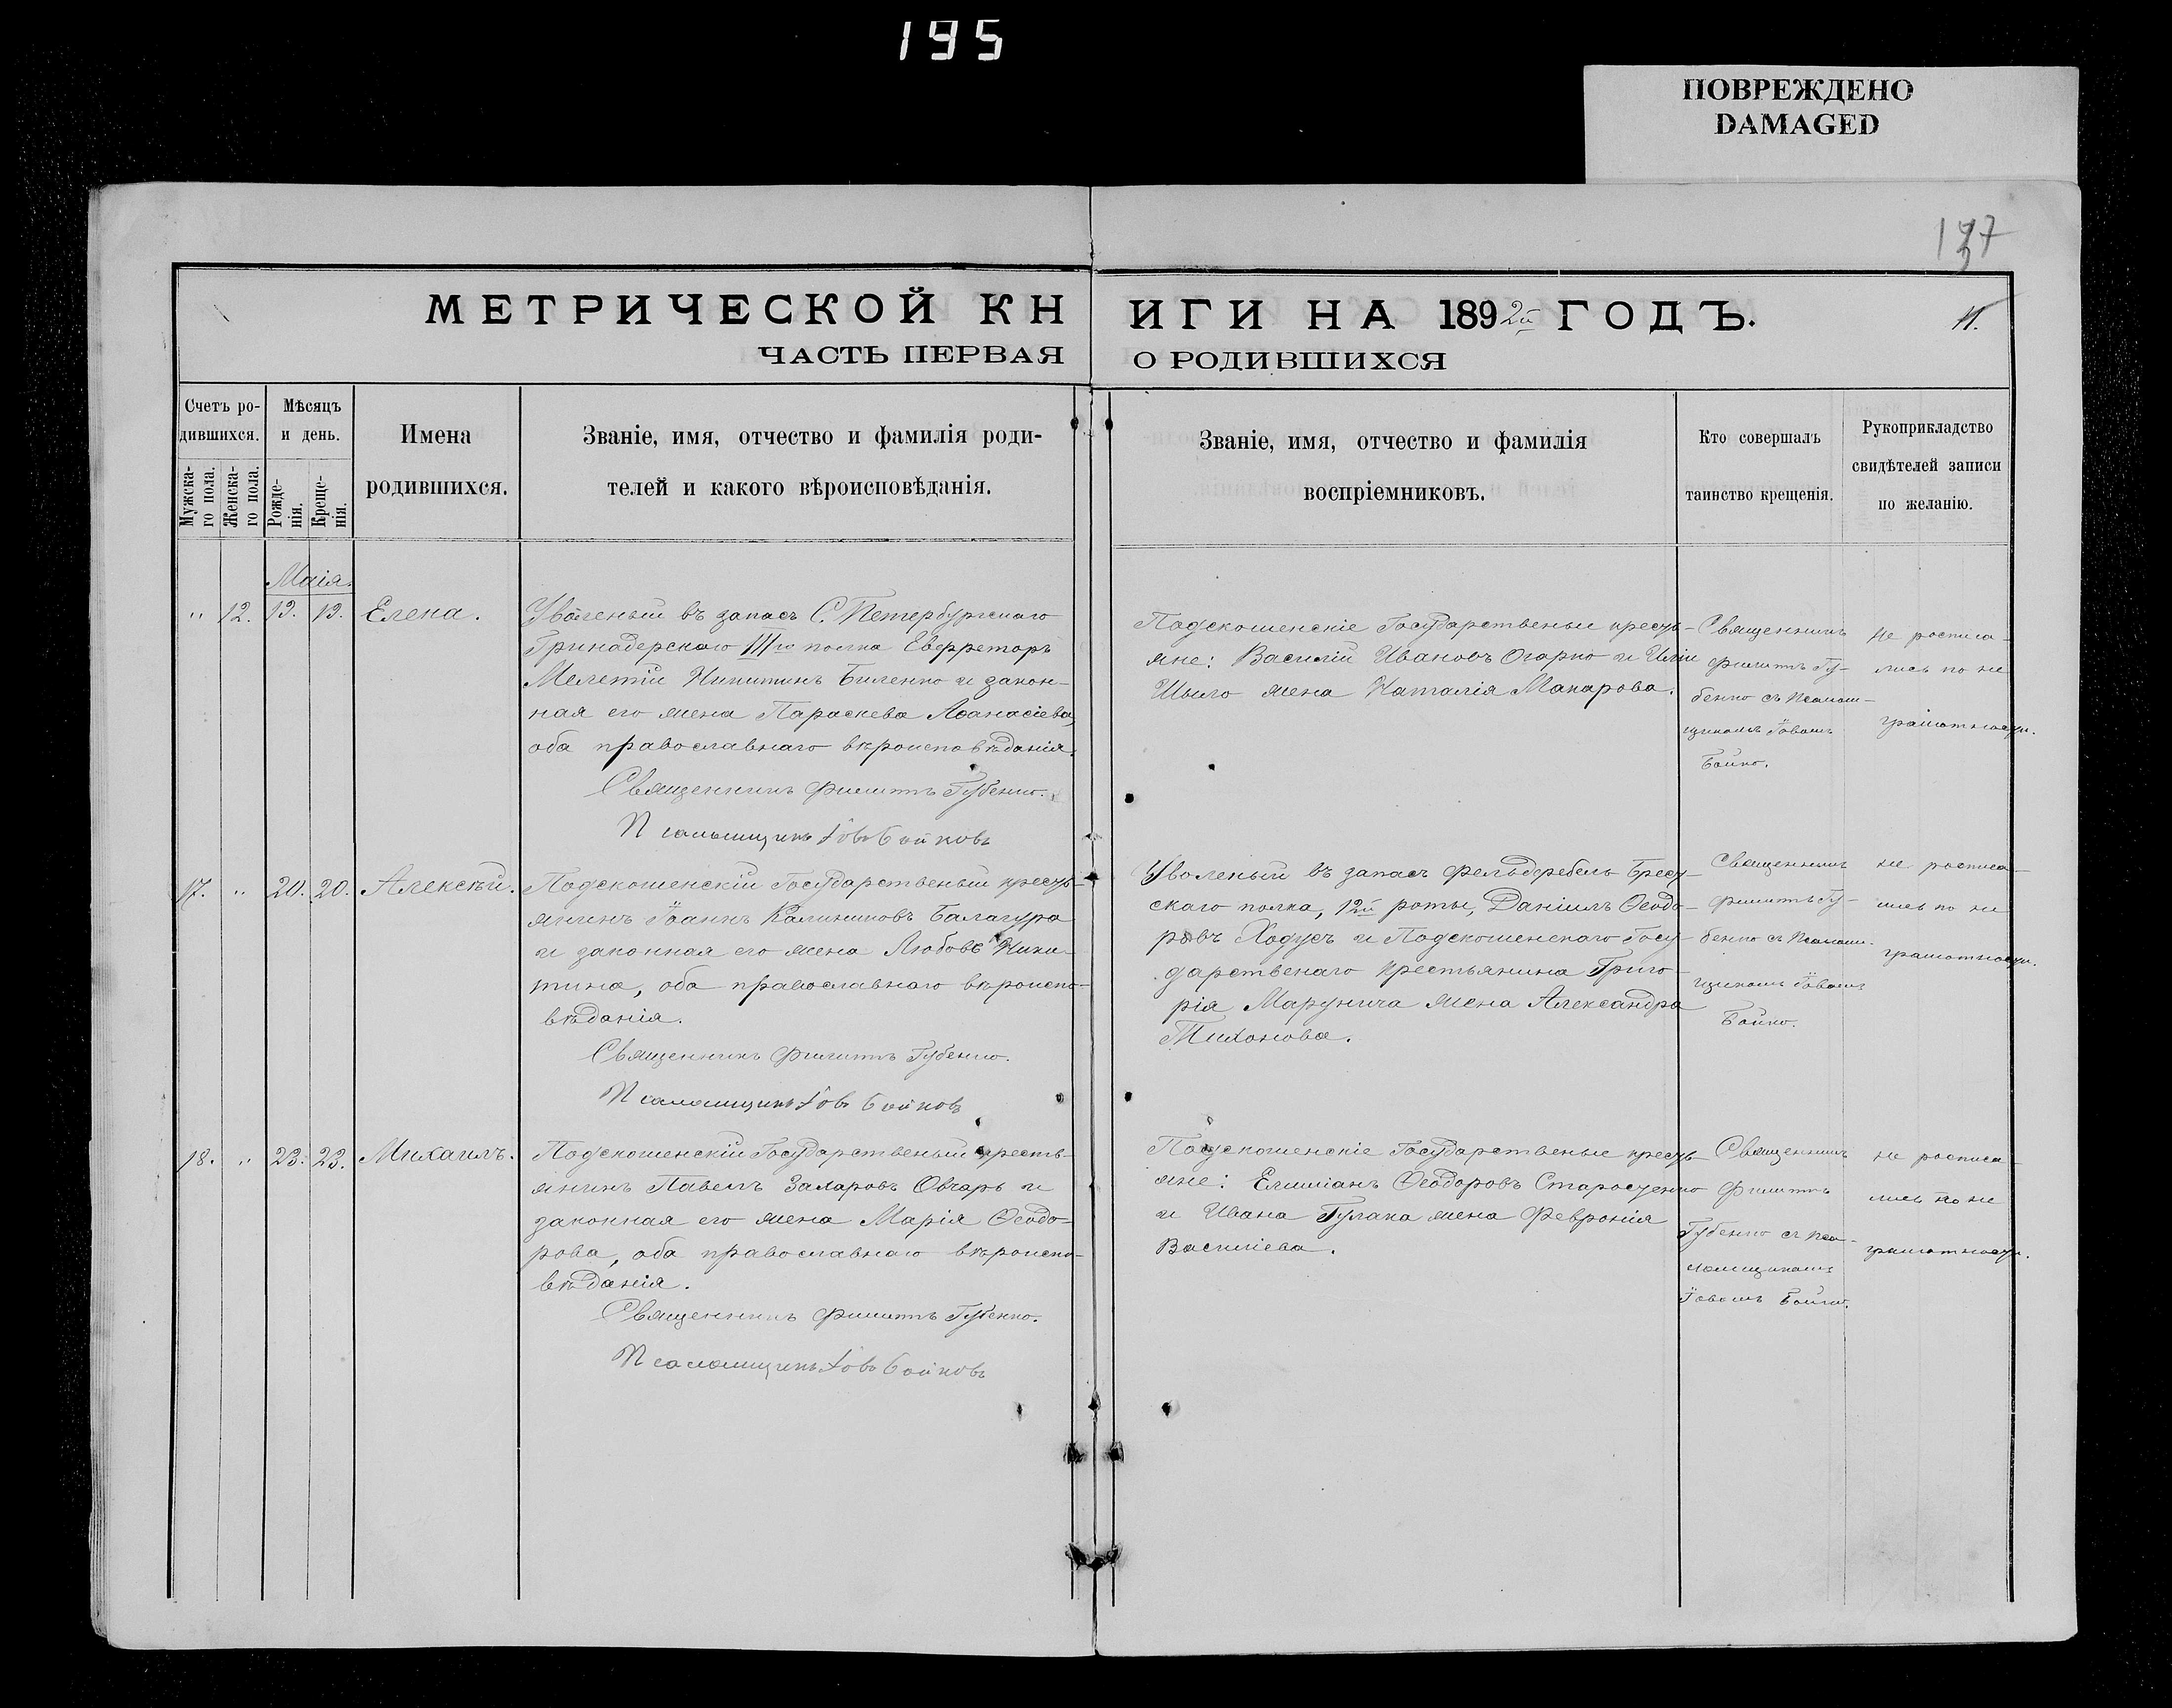 195
ПОВРЕЖДЕНО
DAMAGED
МЕТРИЧЕСКОЙ КНИГИ НА 1892й ГОДЪ.
11.
ЧАСТЬ ПЕРВАЯ О РОДИВШИХСЯ
Счетъ ро-
дившихся.
Мужска-
го пола.
Женска-
го пола.
Мѣсяцъ
и день.
Рожде-
нія.
Креще-
нія.
Имена
родившихся.
Званіе, имя, отчество и фамилія роди-
телей и какого вѣроисповѣданія.
Званіе, имя, отчество и фамилія
воспріемниковъ.
Кто совершалъ
таинство крещенія.
Рукоприкладство
свидѣтелей записи
по желанію.
Маія.
" 12. 13. 13. Елена.
Уволеный въ запасъ С. Петербургскаго
Гринадерскаго III го полка Евфреторъ
Мелетій Никитинъ Биленко и закон-
ная его жена Параскева Аѳанасіева,
оба православнаго вѣроисповѣданія.
Священникъ Филиппъ Губенко.
Псаломщикъ Іовъ Бойковъ
Подскошенскіе Государственые кресть-
яне: Василій Ивановъ Огарко и Иліи
жена Наталія Макарова.
Священникъ
Филиппъ Гу-
бенко съ Псалом-
щикомъ Іовомъ
Бойко.
не росписа-
лись по не
грамотности.
17. " 20. 20. Алексѣй.
Подскошенскій Государственый кресть-
янинъ Іоаннъ Калиниковъ Балагура
и законная его жена Любовь Ники-
тина, оба православнаго вѣроиспо-
вѣданія.
Священникъ Филиппъ Губенко.
Псаломщикъ Іовъ Бойковъ
Уволеный въ запасъ фельдфебель Брест-
скаго полка, 12й роты, Даніилъ Ѳеодо-
ровъ Ходусъ и Подскошенскаго Госу-
дарственаго крестьянина Григо-
рія Марунича жена Александра
Тихонова.
Священникъ
Филиппъ Гу-
бенко съ Псалом-
щикомъ Іовомъ
Бойко.
не росписа-
лись по не
грамотности.
18. " 23. 23. Михаилъ.
Подскошенскій Государственый кресть-
янинъ Павелъ Захаровъ Овчаръ и
законная его жена Марія Ѳеодо-
рова, оба православнаго вѣроиспо-
вѣданія.
Священникъ Филиппъ Губенко.
Псаломщикъ Іовъ Бойковъ
Подскошенскіе Государственые кресть-
яне: Емиліанъ Ѳеодоровъ Старосченко
и Ивана Гулака жена Февронія
Василіева.
Священникъ
Филиппъ
Губенко съ Пса-
ломщикомъ
Іовомъ Бойко.
не росписа-
лись по не
грамотности.